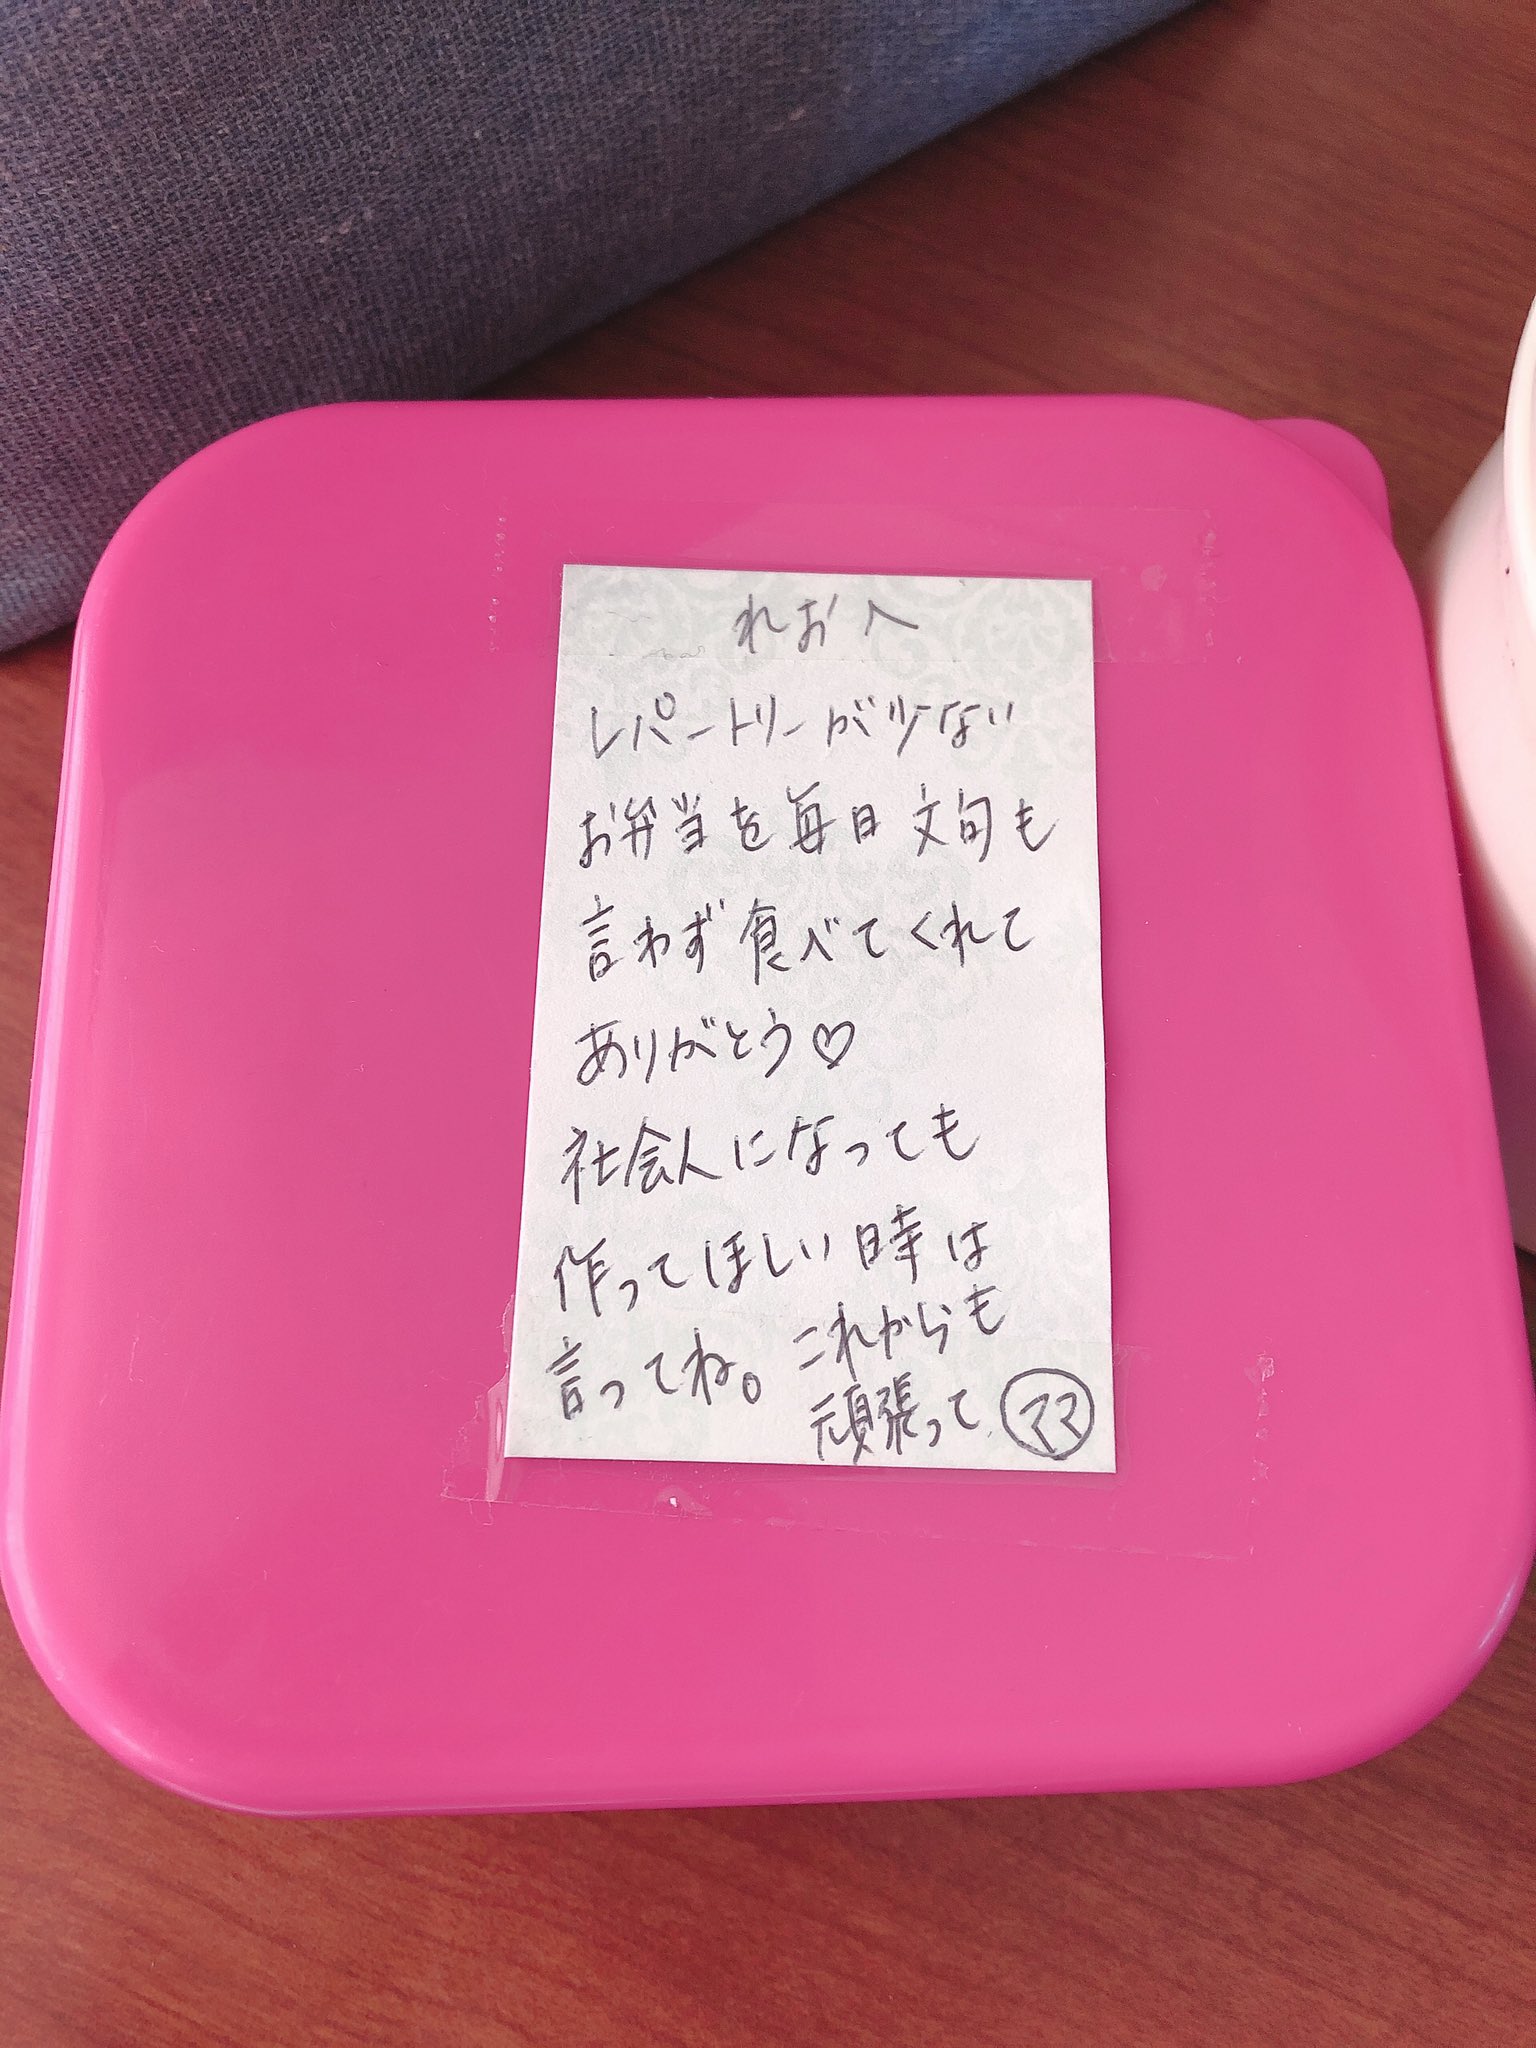 れおへ
レパートリーが少ない
お弁当を毎日文句も
言わず食べてくれて
ありがとう♡
社会人になっても
作ってほしい時は
言ってね。これからも
頑張って ママ